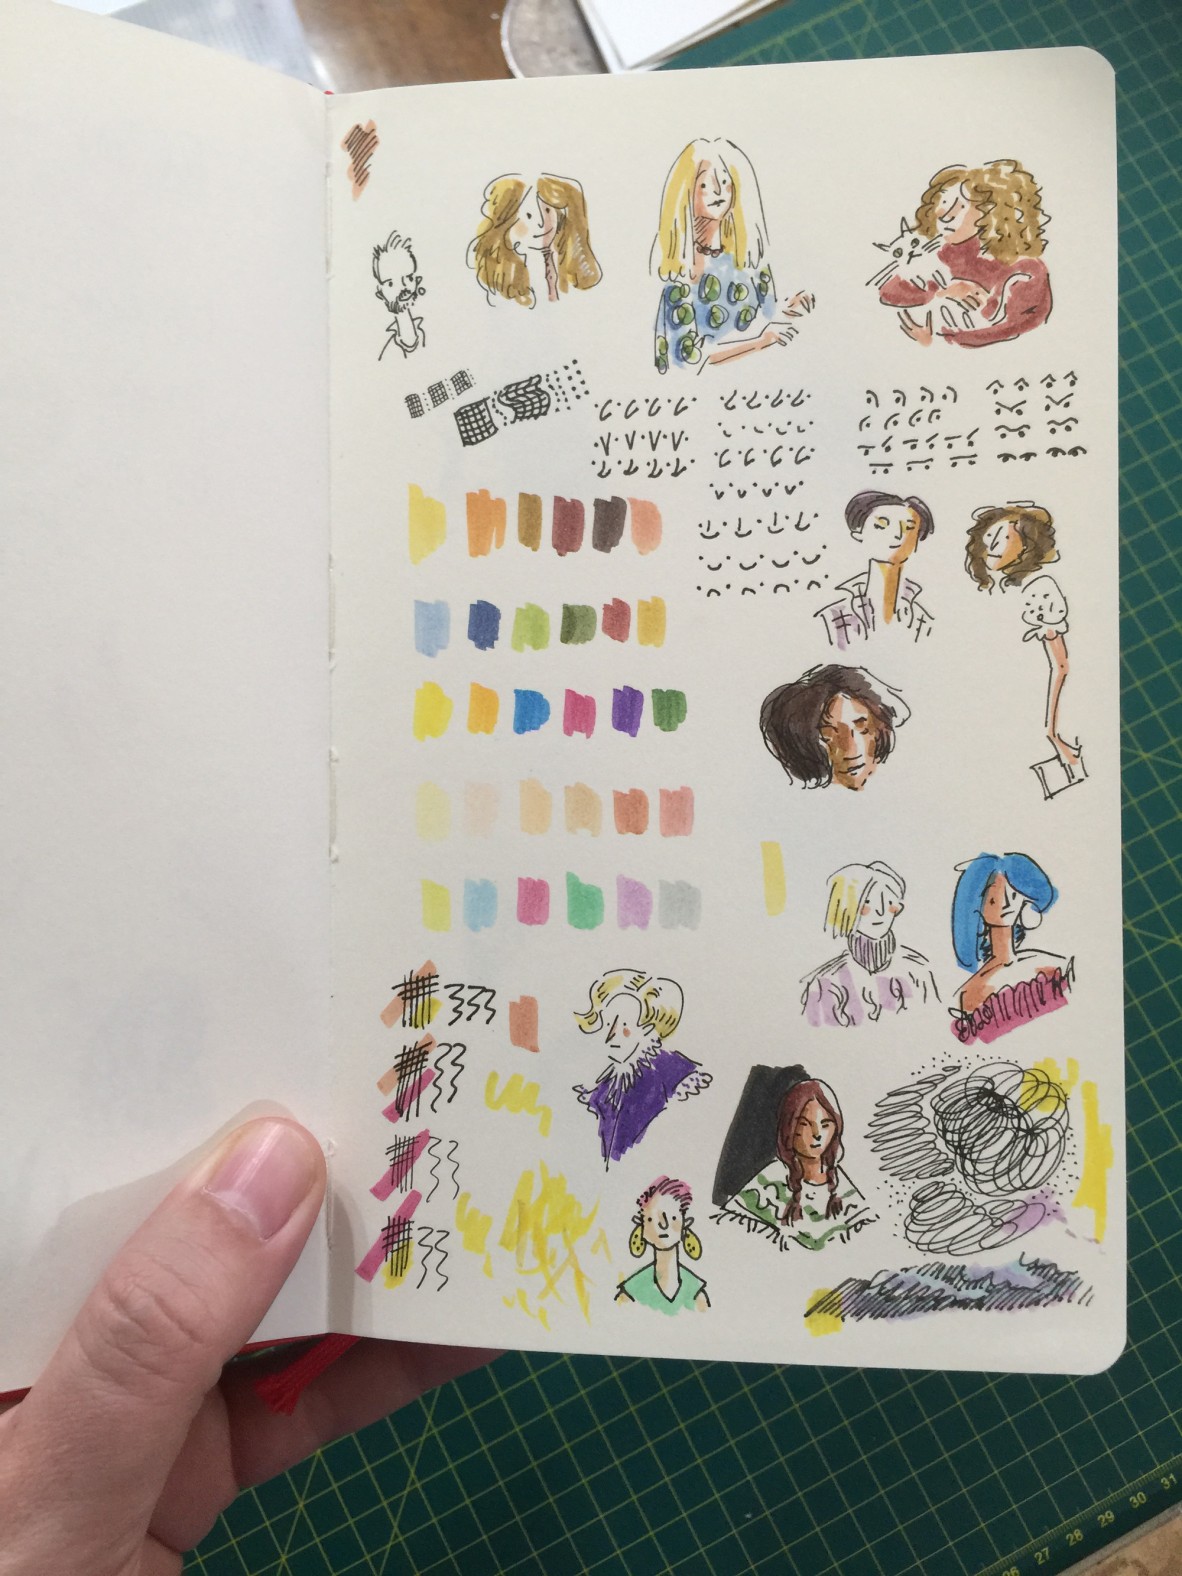 31
30
29
28
27
26